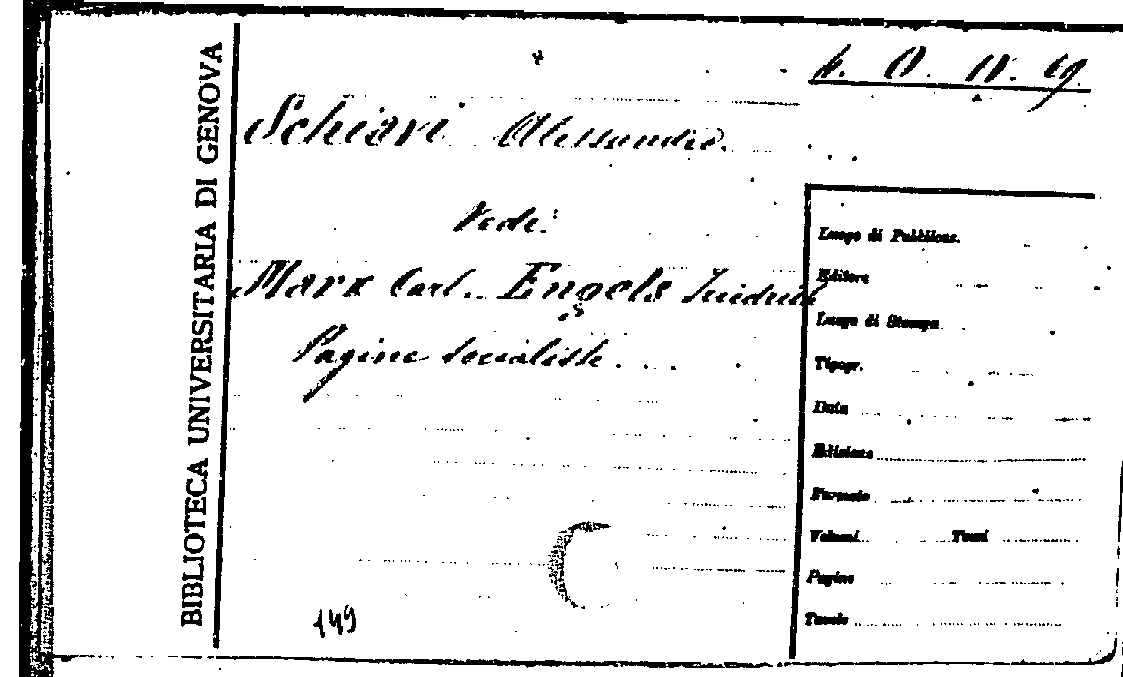 BIBLIOTECA UNIVERSITARIA DI GENOVA
4. O. IV. 69
Schiavi Alessandro.
Vedi:
Marx Carl. Engels Friedrich
Pagine socialiste
149
Luogo di Pubblicaz.
Editore
Luogo di Stampa
Tipogr.
Data
Edizione
Formato
Volumi Tomi
Pagine
Tavole